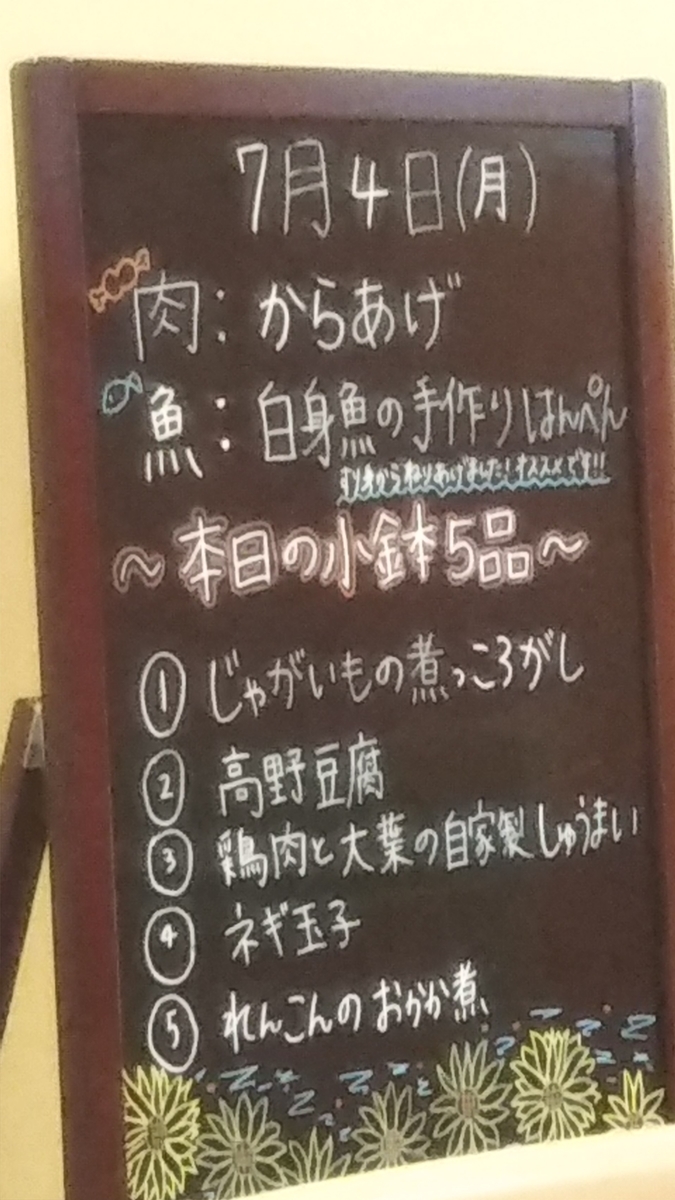 7月4日(月)
肉：からあげ
魚：白身魚の手作りはんぺん
すり身からねりあげました！オススメです!!
～本日の小鉢5品～
① じゃがいもの煮っころがし
② 高野豆腐
③ 鶏肉と大葉の自家製しゅうまい
④ ネギ玉子
⑤ れんこんのおかか煮